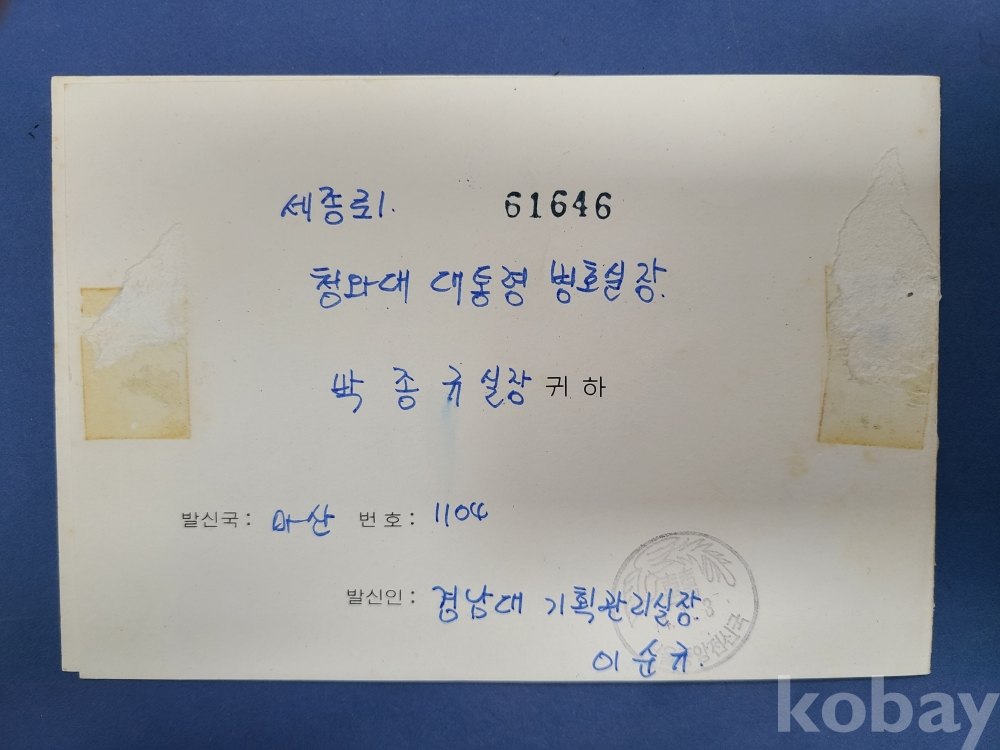 세종로1. 61646
청와대 대통령 경호실장.
박 종 규 실장 귀 하
발신국: 마산 번 호: 1104
발신인: 경남대 기획관리실장.
이 순 규.
전신국
kobay